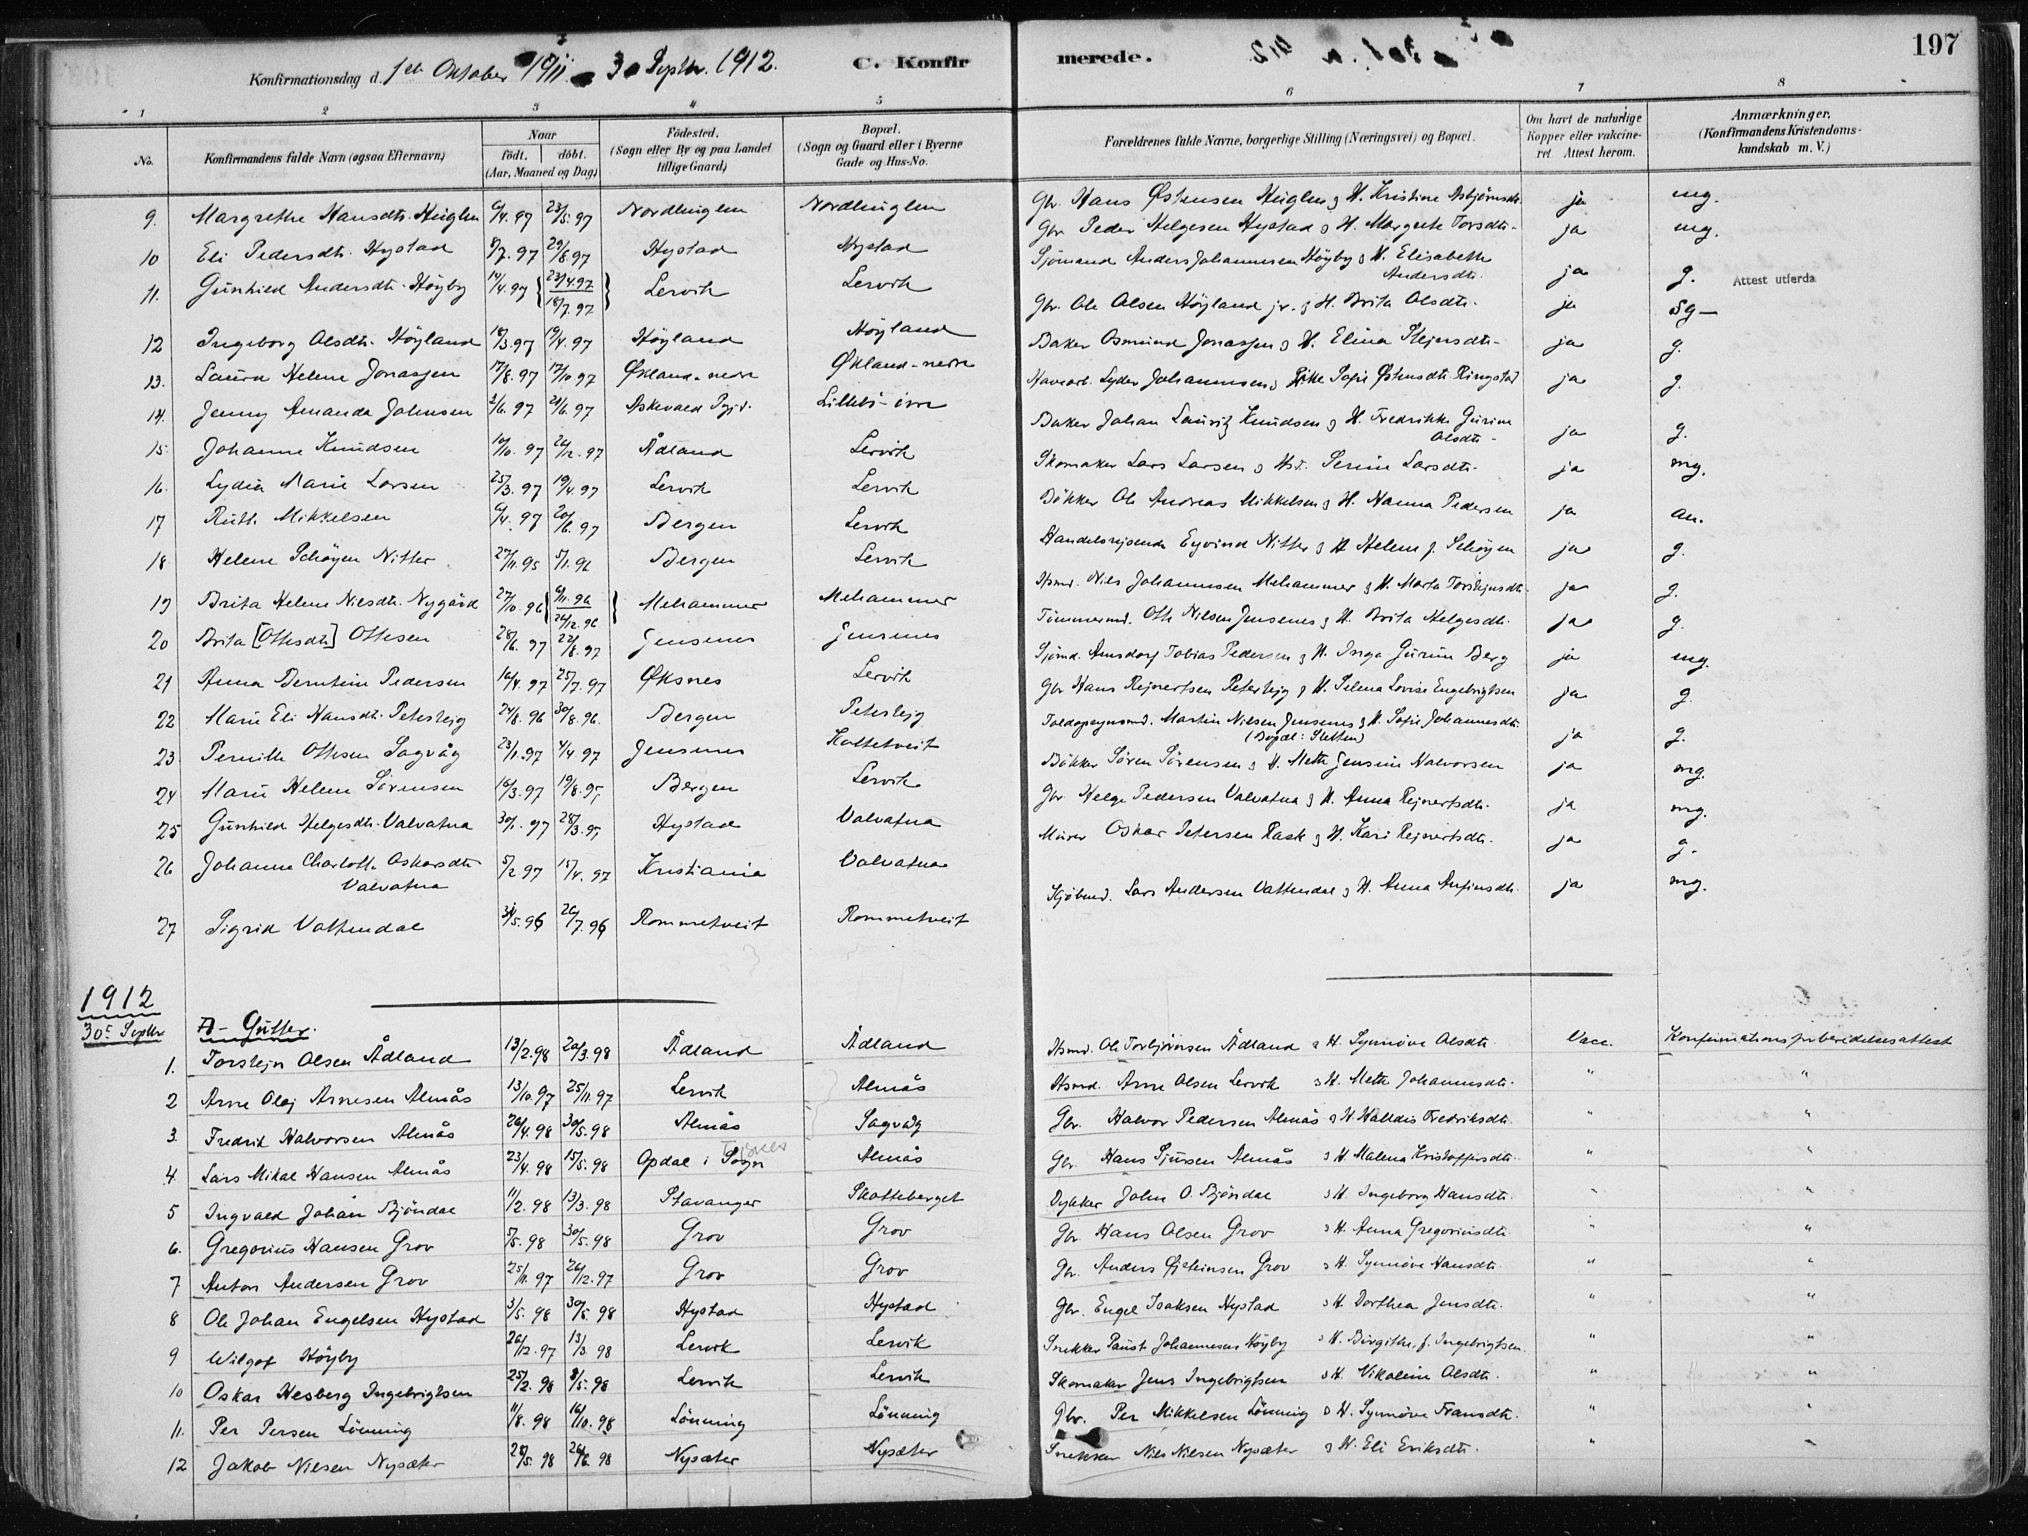 197
Konfirmationsdag d. 1ste Oktober 1911. 30 Septbr. 1912. C. Konfirmerede.
1 2 3 4 5 6 7 8
No. Konfirmandens fulde Navn (ogsaa Efternavn) Naar født. døbt. (Aar, Maaned og Dag) Fødested. (Sogn eller By og paa Landet tillige Gaard) Bopæl. (Sogn og Gaard eller i Byerne Gade og Hus-No. Forældrenes fulde Navne, borgerlige Stilling (Næringsvei) og Bopæl. Om havt de naturlige Kopper eller vakcineret. Attest herom. Anmærkninger. (Konfirmandens Kristendomskundskab m. V.)
9. Margrethe Hansdtr. Huglen 6/4.97 23/5.97 Nordhuglen Nordhuglen Gbr. Hans Østensen Huglen og H. Kristine Asbjørnsdtr. ja mg.
10 Eli Pedersdtr. Hystad 8/7.97 29/8.97 Hystad Hystad Gbr Peder Helgesen Hystad og H. Margrete Torsdtr. ja mg.
11. Gunhild Andersdtr. Høyby 14/4.97 { 23/4.97 18/7.97 } Lervik Lervik Sjømand Anders Johannesen Høyby og H. Elisabeth Andersdtr. ja g. Attest utferda
12 Ingeborg Olsdtr. Høyland 18/3.97 19/4.97 Høyland Høyland Gbr. Ole Olsen Høyland jr. og H. Brita Olsdtr. ja sg
13. Laura Helene Jonassen 17/8.97 17/10.97 Økland-nedre Økland-nedre Baker Osmund Jonassen og H. Elina Stejnsdtr. ja g.
14. Jenny Amanda Johnsen 2/6.97 21/6.97 Askvold Pgjd. Lillebø-ivre Havearb. Lyder Johannesen og Sofie Østensdtr. Ringstad ja g.
15. Johanne Knudsen 10/10.97 26/12.97 Ådland Lervik Baker Johan Lauritz Knudsen og H. Fredrikke Gurine Olsdtr. ja g.
16. Lydia Marie Larsen 25/3.97 19/4.97 Lervik Lervik Skomaker Lars Larsen og Hst. Serine Larsdtr. ja mg.
17 Ruth Mikkelsen 6/4.97 20/6.97 Bergen Lervik Bøkker Ole Andreas Mikkelsen og H. Hanna Pedersen ja an.
18 Helene Schøyen Nitter 27/11.95 5/1.96 Bergen Lervik Handelsrejsende Eyvind Nitter og H. Helene f. Schøyen ja g.
19 Brita Helene Nielsdtr. Nygård 27/10.96 { 8/11.96 26/12.96 } Mehammer Mehammer Hsmd. Niels Johannesen Mehammer og H. Marta Torstejnsdtr. ja g.
20 Brita [Ottesdtr.] Ottesen 28/6.97 22/8.97 Jensenes Jensenes Tømmermd. Otte Nilsen Jensenes og H. Brita Helgesdtr. ja g.
21 Anna Berntine Pedersen 16/4.97 25/7.97 Øksnes Lervik Sjømd. Amsdorf Tobias Pedersen og H. Inga Gurine Berg ja mg.
22 Marie Eli Hansdtr. Petersteg 24/8.96 30/8.96. Bergen Petersteg Gbr Hans Rejnertsen Petersteg og H. Selena Lovise Engebrigtsen ja g.
23 Pernille Ottesen Sagvåg 23/1.97 4/4.97 Jensenes Hattetveit Toldopsynsmd. Martin Nielsen Jensenes og H. Sofie Johannesdtr. (Bopæl: Sletten) ja g.
24 Marie Helene Sørensen 16/3.97 19/8.97 Bergen Lervik Bøkker Søren Sørensen og H. Mette Jensine Halvorsen ja mg.
25 Gunhild Helgesdtr. Valvatna 30/1.97 28/3.97 Hystad Valvatna Gbr Helge Pedersen Valvatna og H. Anna Rejnertsdtr. ja mg.
26 Johanne Charlotte Oskarsdtr. Valvatna 5/2.97 15/4.97 Kristiania Valvatna Murer Oskar Petersen Rask og H. Kari Rejnertsdtr. ja g.
27 Sigrid Vattendal 31/5.96 26/7.96 Rommetveit Rommetveit Kjøbmd. Lars Andersen Vattendal og H. Anna Anfinsdtr. ja mg.
1912
30t Septbr. A- Gutter.
1. Torstejn Olsen Ådland 13/2.98 20/3.98 Ådland Ådland Hsmd. Ole Torbjørnsen Ådland og H. Synnøve Olsdtr. Vacc. Konfirmationsforberedelsesattest
2 Arne Olaj Arnesen Almås 13/10.97 25/11.97 Lervik Almås Hsmd. Arne Olsen Lervik og H. Mette Johannesdtr. " "
3. Fredrik Halvorsen Almås 26/4.98 30/5.98 Almås Sagvåg Gbr. Halvor Pedersen Almås og H. Halldis Fredriksdtr. " "
4. Lars Mikal Hansen Almås 23/4.98 15/5.98 Opdal i Sogn Almås Gbr. Hans Sjursen Almås og H. Malena Kristoffersdtr. " "
5 Ingvald Johan Bjøndal 11/2.98 13/3.98 Stavanger Skotteberget Dykker John O. Bjøndal og H. Ingeborg Hansdtr. " "
6. Gregorius Hansen Grov 5/5.98 30/5.98 Grov Grov Gbr. Hans Olsen Grov og H. Anna Gregoriusdtr. " "
7 Anton Andersen Grov 25/11.97 26/12.97 Grov Grov Gbr. Anders Østeinsen Grov og H. Synnøve Hansdtr. " "
8 Ole Johan Engelsen Hystad 3/5.98 30/5.98 Hystad Hystad Gbr. Engel Isaksen Hystad og H. Dorthea Jensdtr. " "
9 Wilgot Høyby 26/12.97 13/3.98 Lervik Lervik Snekker Paust Johannesen Høyby og H. Birgithe f. Ingebrigtsen. " "
10 Oskar Hesberg Ingebrigtsen 25/2.98 8/5.98 Lervik Lervik Skomaker Jens Ingebrigtsen og H. Nikoline Olsdtr. " "
11. Per Persen Lønning 11/8.98 16/10.98 Lønning Lønning Gbr. Per Mikkelsen Lønning og H. Synnøve Fransdtr. " "
12 Jakob Nilsen Nysæter 28/5.98 26/6.98 Nysæter Nysæter Snekker Nils Nilsen Nysæter og H. Eli Eriksdtr. " "